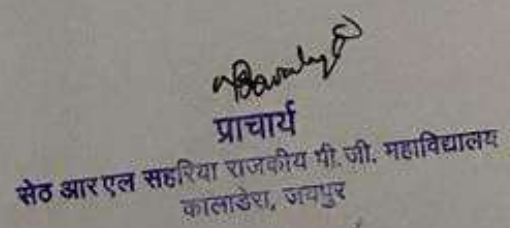 प्राचार्य
सेठ आर एल सहरिया राजकीय पी. जी. महाविद्यालय
कालाडेरा, जयपुर